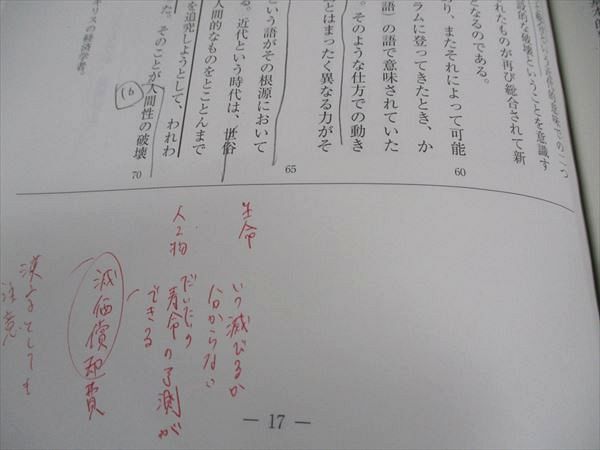 な破壊ということを意識す
れたものが再び総合されて新
となるのである。
り、またそれによって可能
ラムに登ってきたとき、か
語)の語で意味されていた
。そのような仕方での動き
とはまったく異なる力がそ
という語がその根源において
る。近代という時代は、世俗
人間的なものをとことんまで
を追究しようとして、われわ
た。そのことが人間性の破壊
イギリスの経済学者。
60
65
70
(6)
生命
いつ滅びるか
分からない
人工物
だいたいの
寿命の予測が
できる
減価償却費
漢字としても
注意
— 17 —